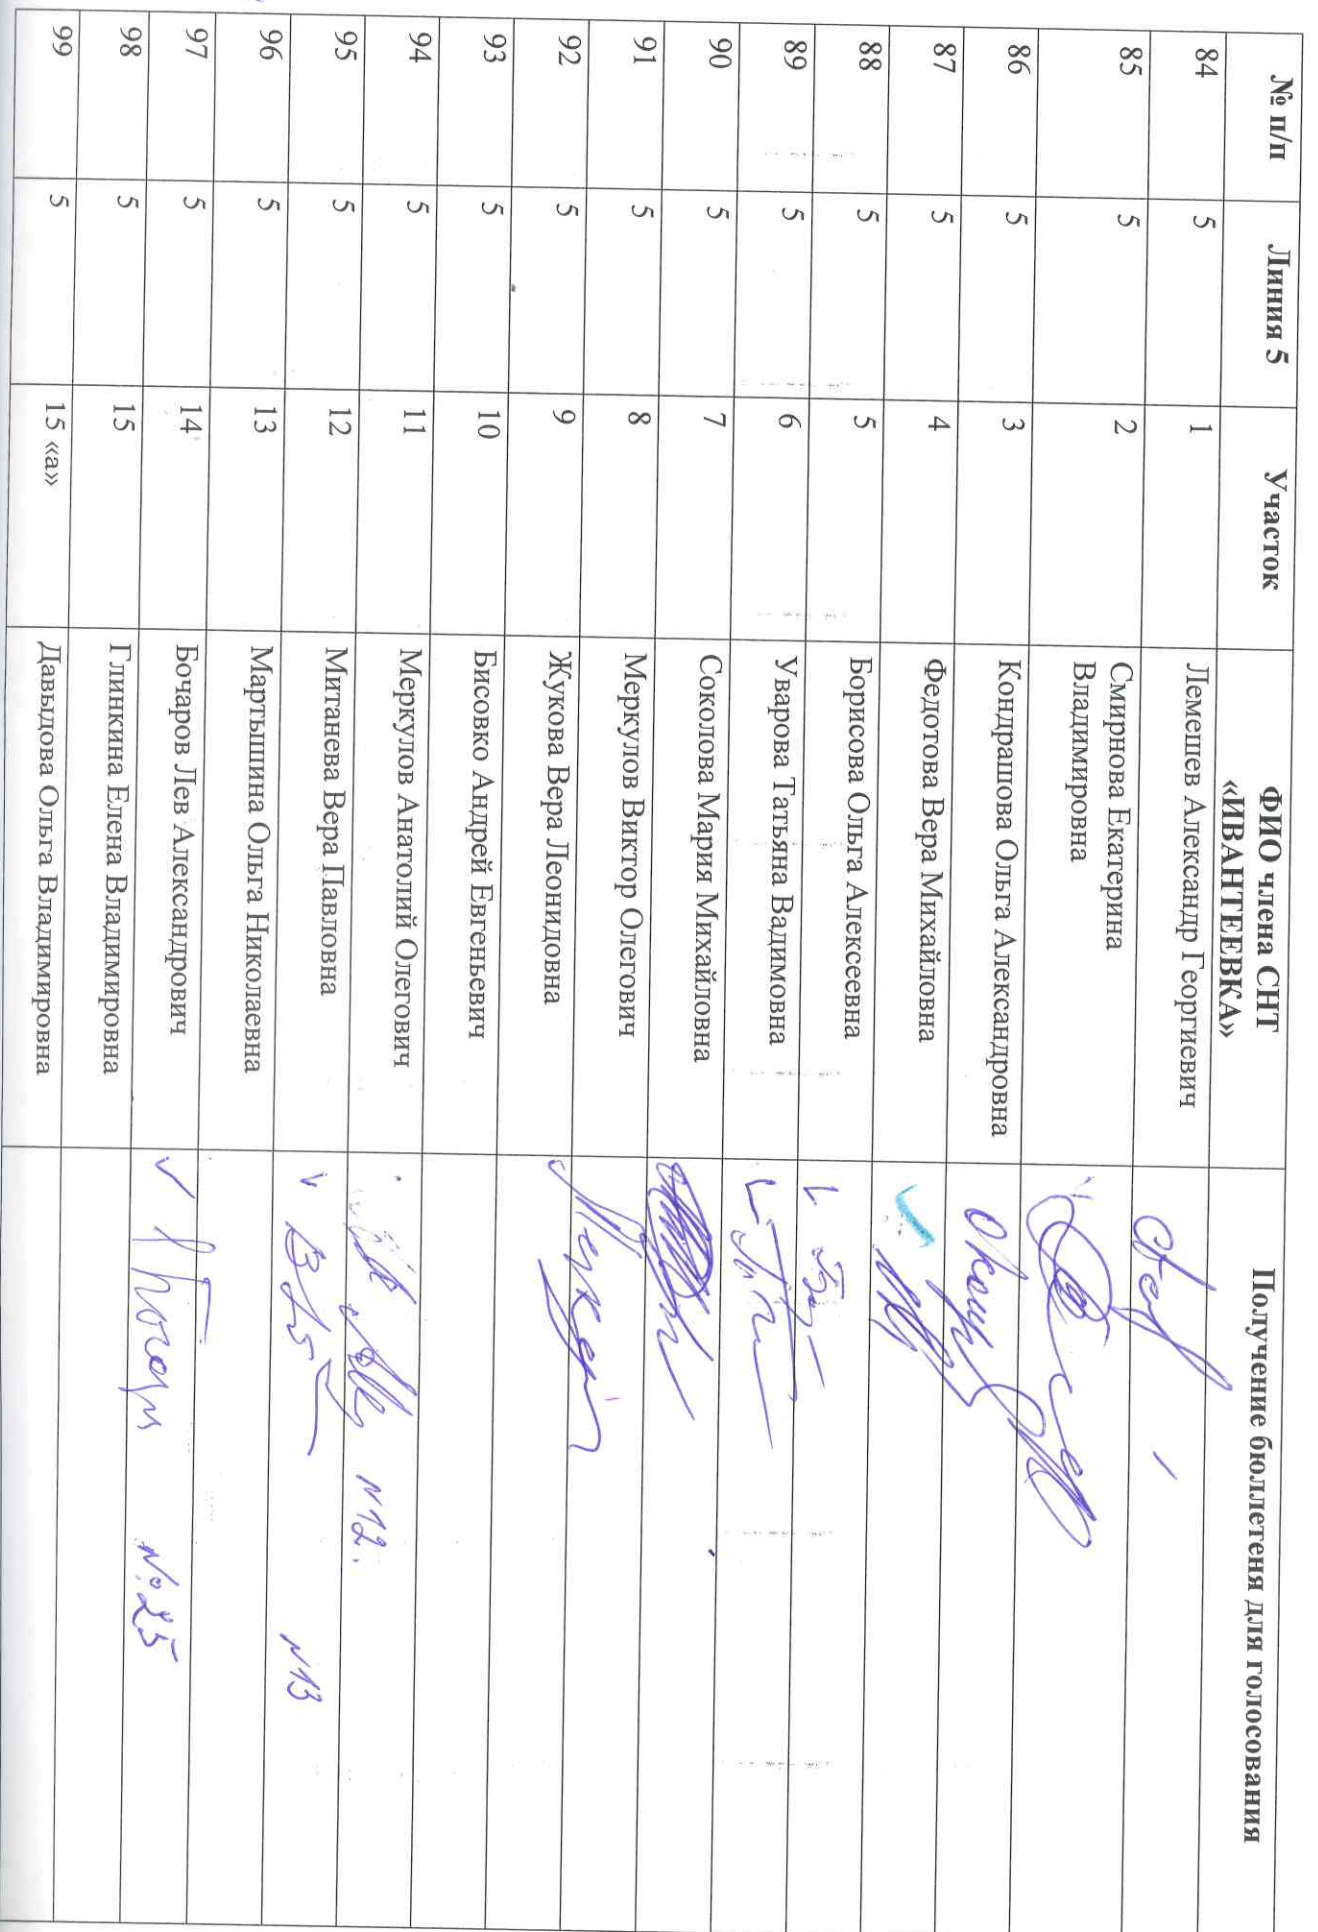 № п/п Линия 5 Участок ФИО члена СНТ «ИВАНТЕЕВКА» Получение бюллетеня для голосования
84 5 1 Лемешев Александр Георгиевич
85 5 2 Смирнова Екатерина
Владимировна
86 5 3 Кондрашова Ольга Александровна
87 5 4 Федотова Вера Михайловна
88 5 5 Борисова Ольга Алексеевна
89 5 6 Уварова Татьяна Вадимовна
90 5 7 Соколова Мария Михайловна
91 5 8 Меркулов Виктор Олегович
92 5 9 Жукова Вера Леонидовна
93 5 10 Бисовко Андрей Евгеньевич
94 5 11 Меркулов Анатолий Олегович N12.
95 5 12 Митанева Вера Павловна N13
96 5 13 Мартышина Ольга Николаевна
97 5 14 Бочаров Лев Александрович №25
98 5 15 Глинкина Елена Владимировна
99 5 15 «а» Давыдова Ольга Владимировна